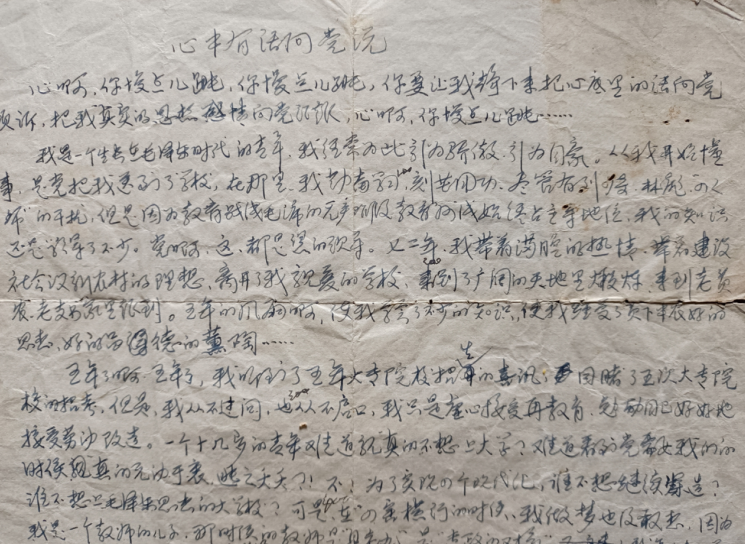 心中有话向党说
心啊，你慢点儿跳，你慢点儿跳，你要让我静下来把心底里的话向党
诉，把我真实的思想感情向党诉，心啊，你慢点儿跳……
我是一个生长在毛泽东时代的青年，我经常为此引为骄傲，引为自豪。从我开始懂
事，是党把我送到了学校，在那里，我勤奋刻苦用功，尽管有刘 林彪 的
的干扰，但是因为教育战线毛主席的无产阶级教育 始终占主导地位，我的知识
还是学得了不少。党啊，这都是您的 。七二年，我带着满腔的热情，带着建设
社会议新农村的理想，离开了我亲爱的学校，来到了广阔的天地里锻炼，来到老贫
农、老支书家里 。五年的 啊，使我学了不少的知识，使我 了贫下中农好的
思想，好的品德的薰陶……
五年了啊，五年了，我 了五年大专院校招生的喜讯，目睹了五次大专院
校的招考，但是，我从不过问，也从不启口，我只是虚心接受再教育，勉励自己好好地
接受劳动改造。一个十九岁的青年难道就真的不想上大学？难道看到党需要我们的
时候，真的无动于衷， ？！不！为了实现四个现代化，谁不想继续深造？
谁不想上毛泽东思想的大学校？可是，在四害横行的时候，我做梦也没敢去，因为
我是一个教师的儿子，那时候的教师是